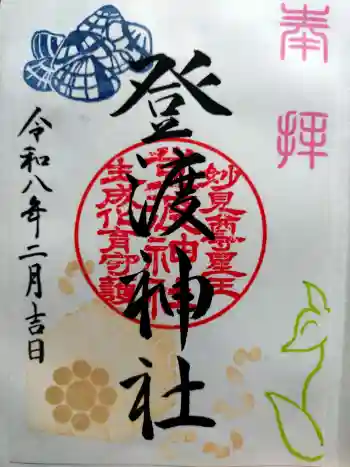 奉拝
登渡神社
妙見尊星王
登渡神社
生成化育守護
令和八年二月吉日